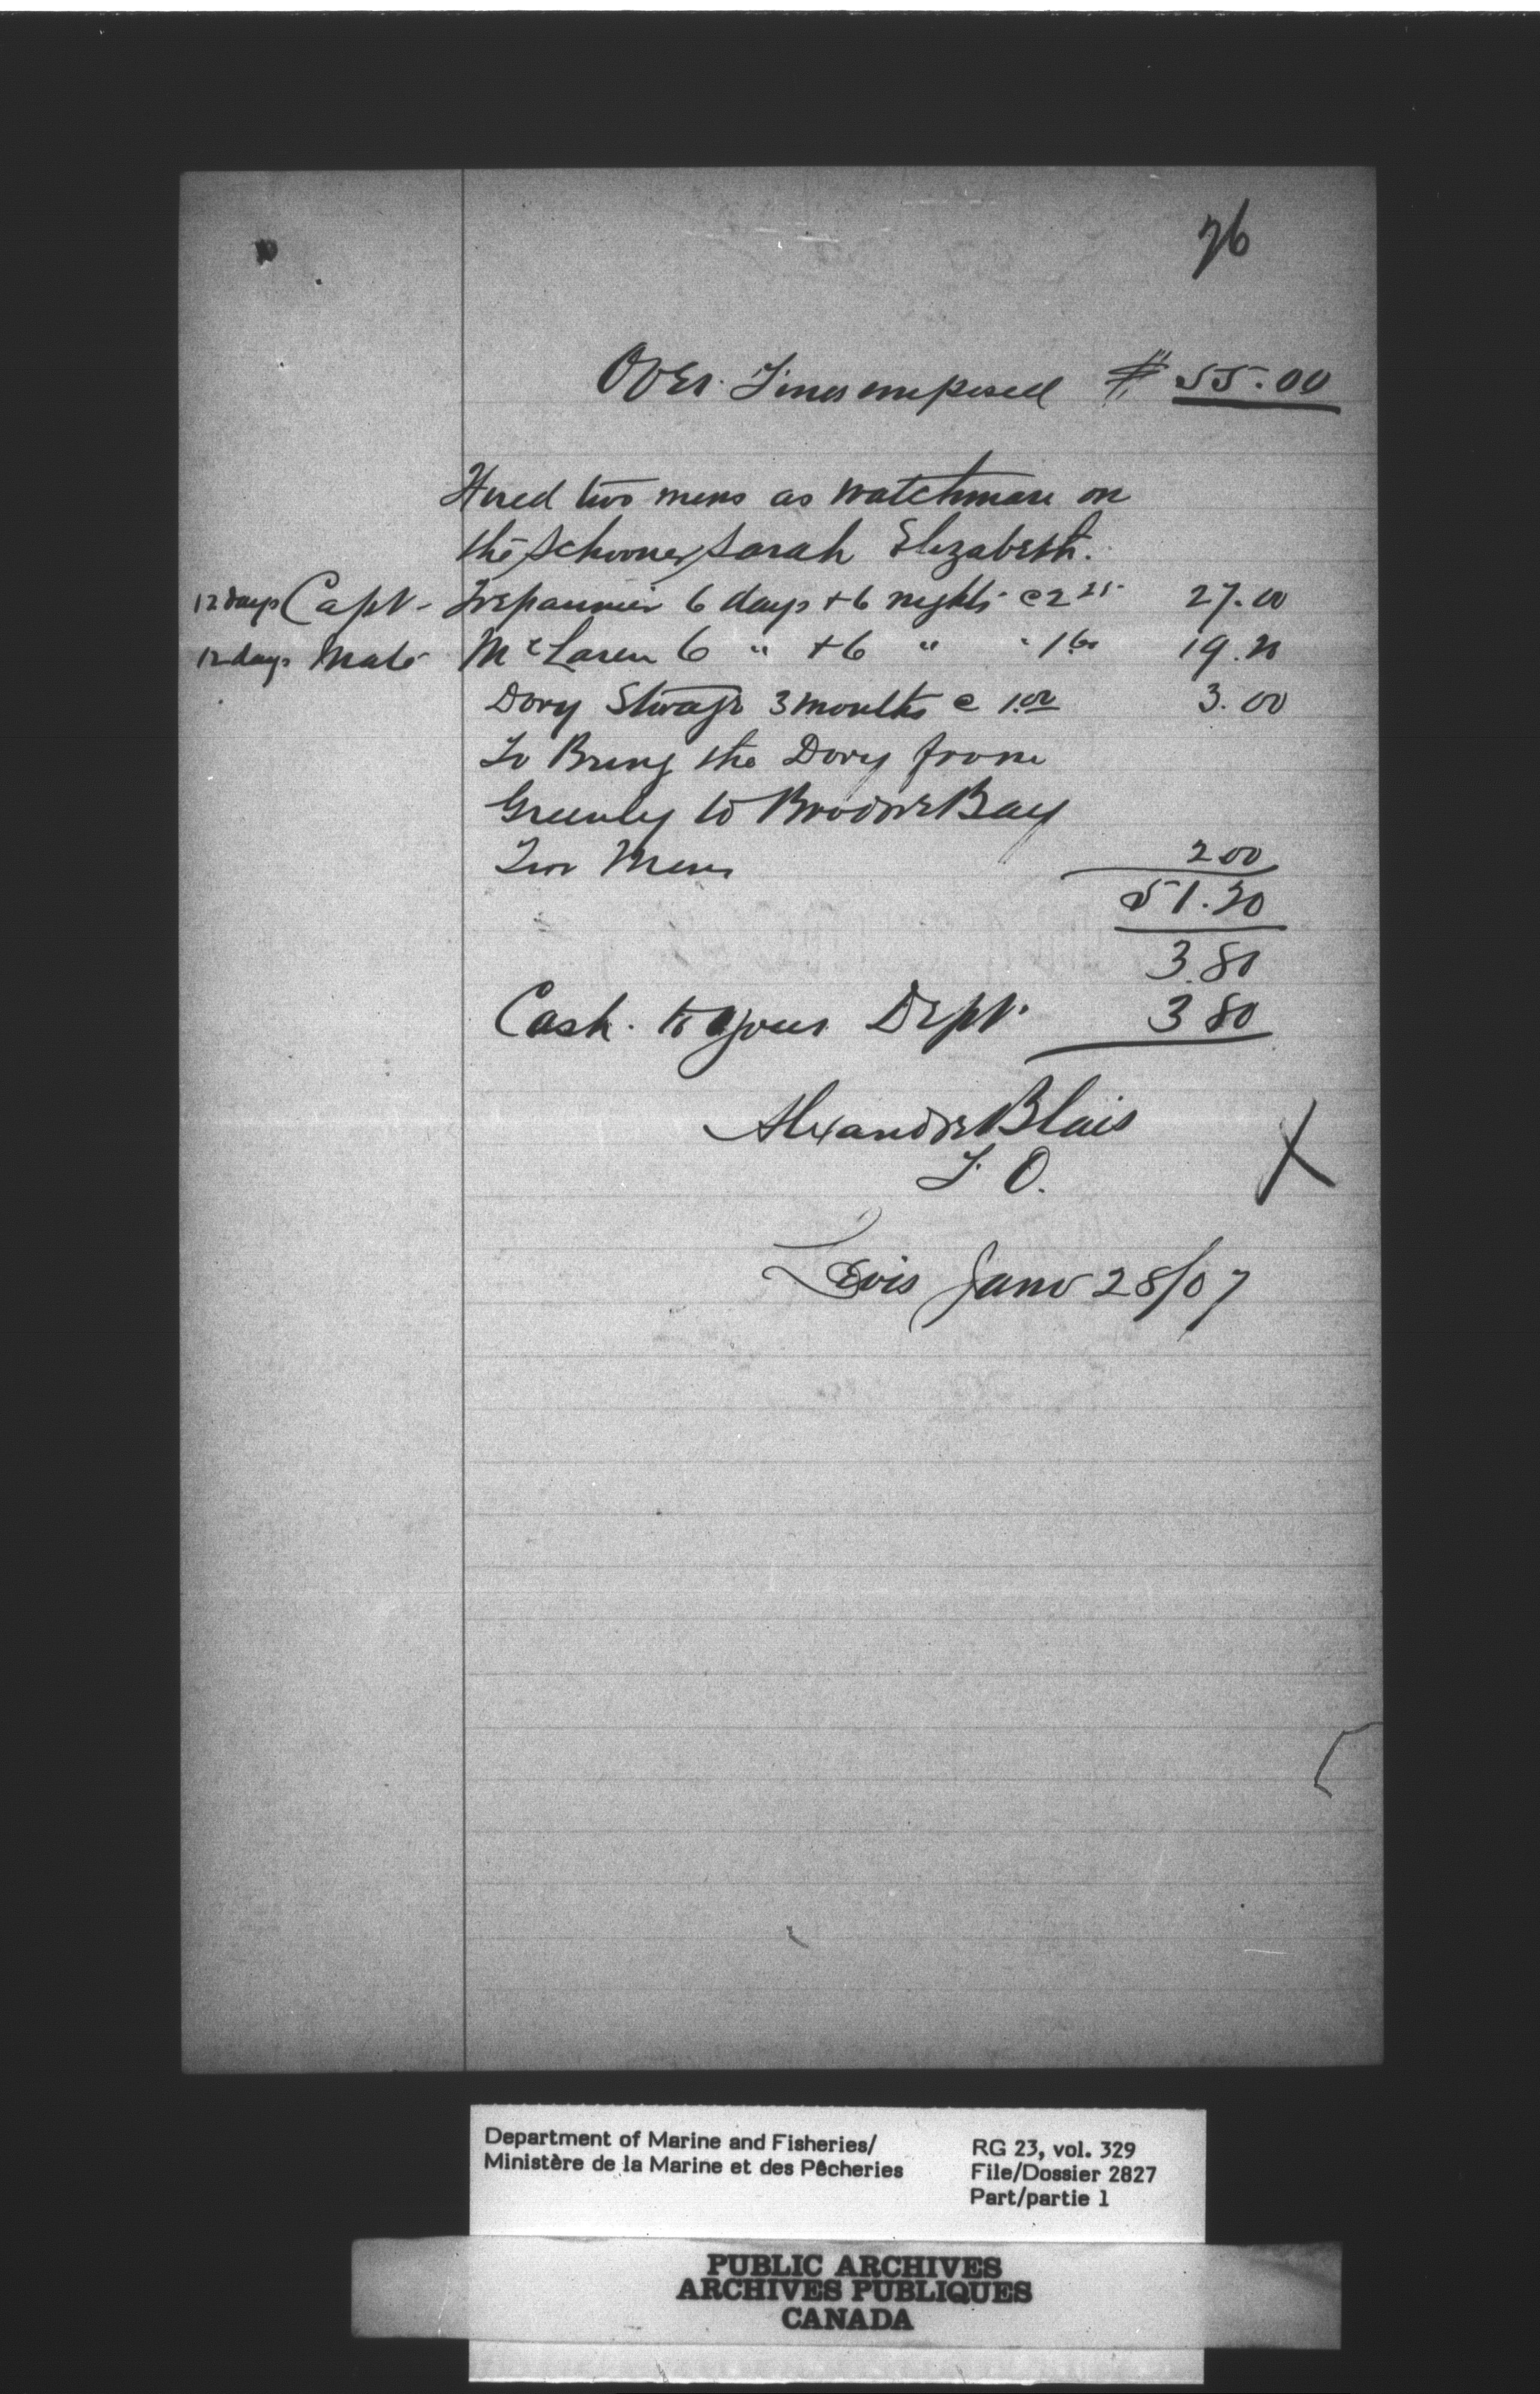 76
Over. Fines emposed $ 55.00
Hired two mens as watchman on
the Schooner Sarah Elizabeth.
12 days Capt - Trepannier 6 days + 6 nights @ 2 25 27.00
12 days Mate McLaren 6 " + 6 " " 1 60 19.20
Dory Storage 3 months @ 1.00 3.00
To Bring the Dory from
Greenly to Bradore Bay
Two Mens 2 00
51.20
3.80
Cash. to your Dept. 3 80
Alexandre Blais
F. O.
Levis Janv 28/07
Department of Marine and Fisheries/
Ministère de la Marine et des Pêcheries
RG 23, vol. 329
File/Dossier 2827
Part/partie 1
PUBLIC ARCHIVES
ARCHIVES PUBLIQUES
CANADA